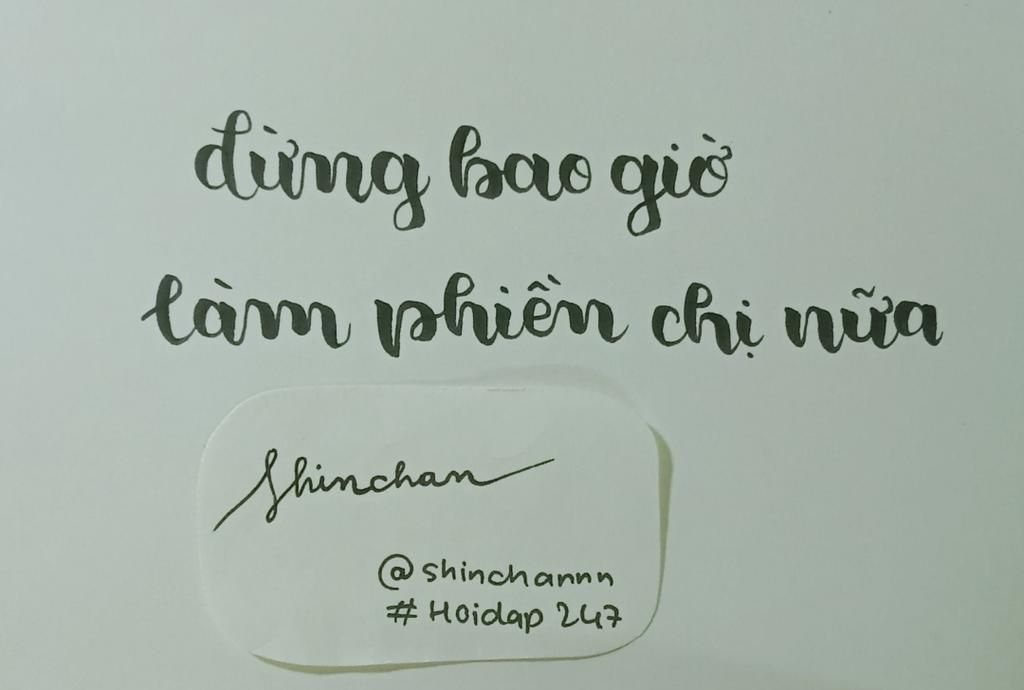 đừng bao giờ
làm phiền chị nữa
Shinchan
@shinchannn
#Hoidap 247